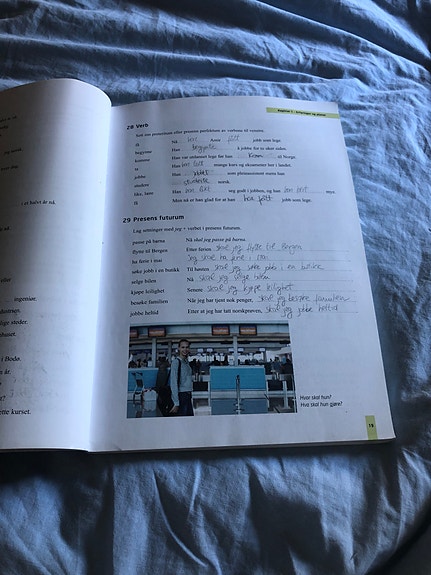 28 Verb
få Nå har Amir fått jobb som lege.
begynne Han begynte å jobbe for to uker siden.
komme Han var utdannet lege før han kom til Norge.
ta Han har tatt mange kurs og eksamener her i landet.
jobbe Han som pleieassistent mens han
studere studerte norsk.
like, lære Han har likt seg godt i jobben, og han har lært mye.
få Moa nå er han glad for at han har fått jobb som lege.
29 Presens futurum
Lag setninger med jeg + verbet i presens futurum.
passe på barna Nå skal jeg passe på barna.
flytte til Bergen Etter ferien skal jeg flytte til Bergen
ha ferie i mai Jeg skal ha ferie i mai
søke jobb i en butikk Til høsten skal jeg søke jobb i en butikk
selge bilen Nå skal jeg selge bilen
kjøpe leilighet Senere skal jeg kjøpe leilighet
besøke familien Når jeg har tjent nok penger, skal jeg besøke familien
jobbe heltid Etter at jeg har tatt norskprøven, skal jeg jobbe heltid
Hvor skal hun?
Hva skal hun gjøre?
19
i et halvt år nå.
ingeniør.
lige steder.
i Bodø.
ette kurset.